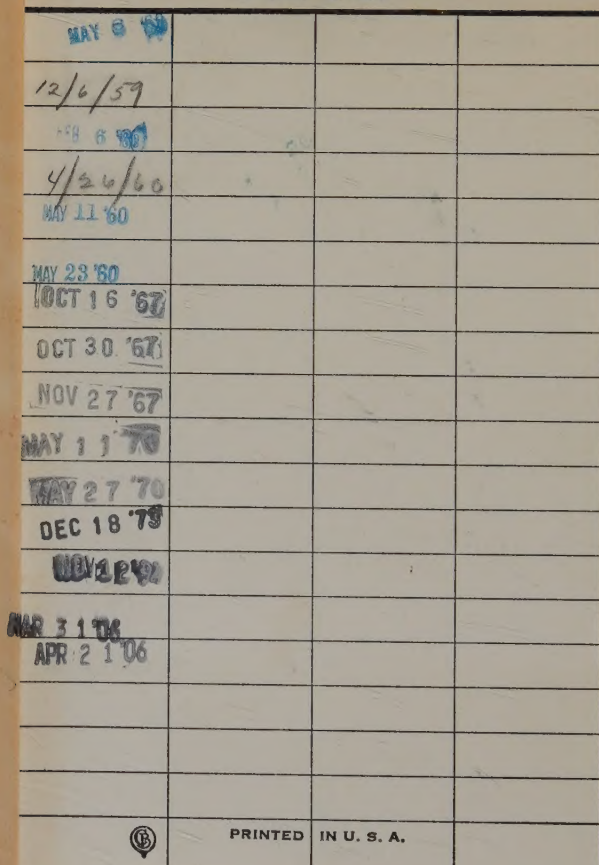 MAY 6
12/6/59
FEB 6
4/26/60
MAY 11 '60
MAY 23 '60
OCT 16 '67
OCT 30 '67
NOV 27 '67
MAY 11 '70
MAY 27 '70
DEC 18 '79
NOV 12
MAR 31 '06
APR 21 '06
PRINTED IN U. S. A.